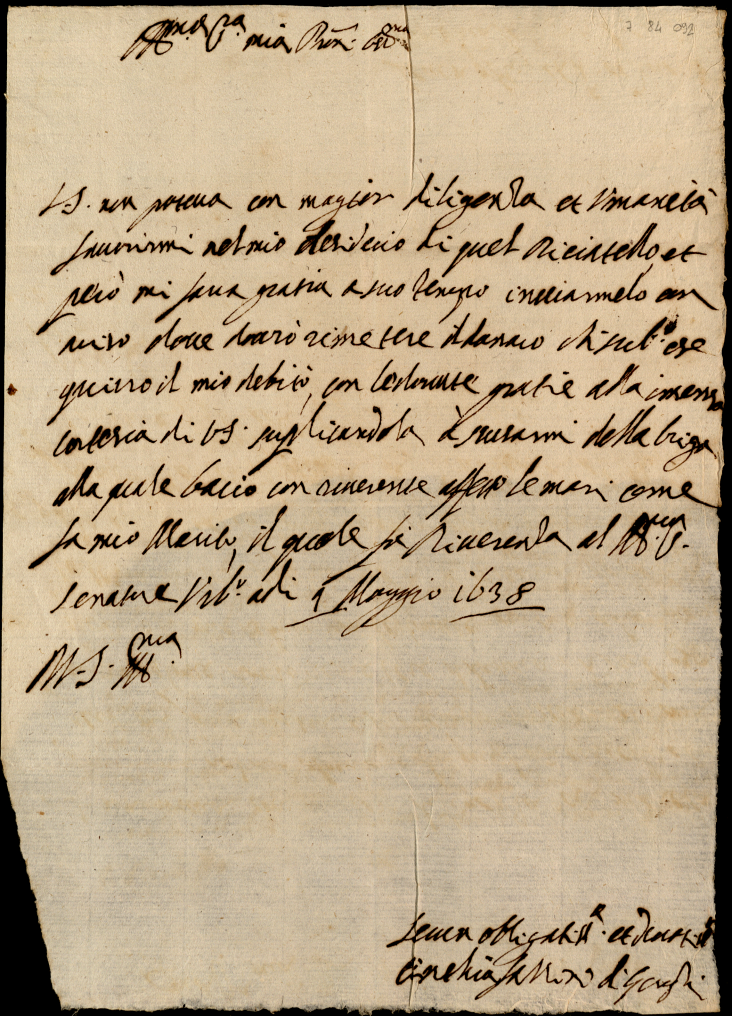 7 84 092
Ill.ma Sig.ra mia P.rona Oss.ma
V.S. non poteua con magior diligenza et Vmanità
fauorirmi nel mio desiderio di quel Ricciatello, et
però mi farà gratia a suo tempo inuiarmelo con
auiso doue dourò rimetere il danaro ch subº ese
guirò il mio debito, con le douute gratie alla imensa
cortesia di VS. suplicandola à scusarmi della briga
alla quale bacio con riuerente affetto le mani come
fa mio Marito, il quale fà Riuerenza al
senatore adi Maggio 1638
V.S. Ill.ma
Serua obligat.ma et
di